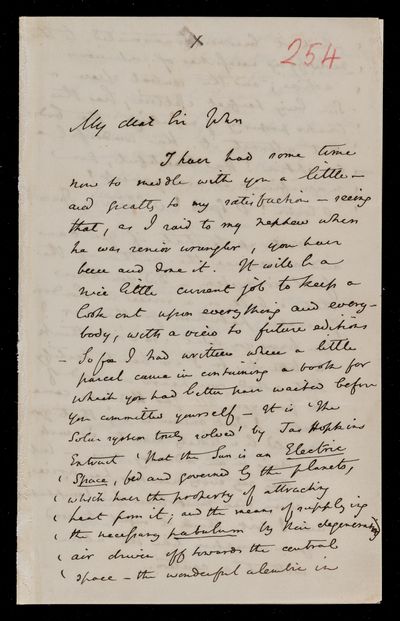 x
254
My dear Sir John
I have had some time
now to meddle with you a little —
and greatly to my satisfaction — seeing
that, as I said to my nephew when
he was senior wrangler, you have
been and done it. It will be a
nice little current job to keep a
look out upon everything and every-
body, with a view to future editions
— So far I had written when a little
parcel came in containing a book for
which you had better have waited before
you committed yourself — It is 'The
Solar system truly solved' by Jas Hopkins
Entwist 'That the Sun is an Electric
' Space, fed and governed by the planets,
' which have the property of attracting
' heat from it; and the means of supplying
' the necessary pabulum by their degenerated
' air driven off towards the central
' space — the wonderful alembic in